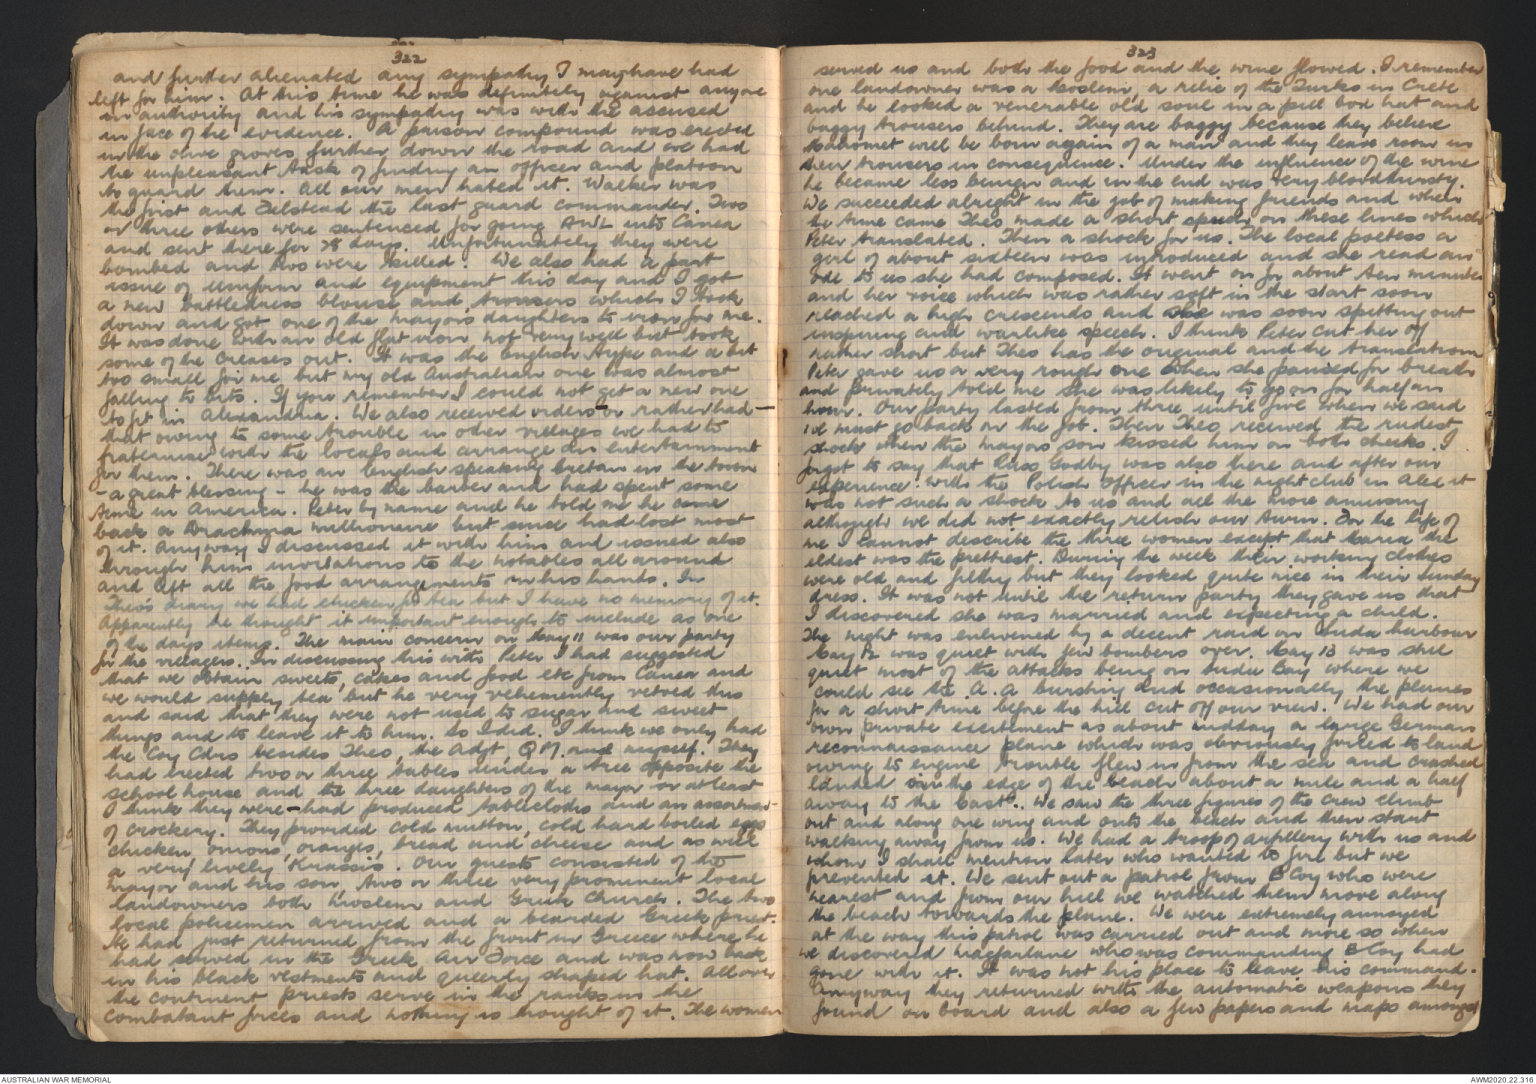 322
and further alienated any sympathy I may have had
left for him. At this time he was definitely against anyone
in authority and his sympathy was with the accused
in face of the evidence. A prison compound was erected
in the olive groves further down the road and we had
the unpleasant task of finding an officer and platoon
to guard them. All our men hated it. Walker was
the first and Zelstead the last guard commander. Two
or three others were sentenced for going AWL into Canea
and sent there for 28 days. Unfortunately they were
bombed and two were killed. We also had a part
issue of uniform and equipment this day and I got
a new battledress blouse and trousers which I took
down and got one of the mayor's daughters to iron for me.
It was done with an old flat iron not very well but took
some of the creases out. It was the English type and a bit
too small for me but my old Australian one was almost
falling to bits. If you remember I could not get a new one
to fit in Alexandria. We also received orders - or rather had -
that owing to some trouble in other villages we had to
fraternise with the locals and arrange an entertainment
for them. There was an English speaking Cretan in the town
- a great blessing - he was the barber and had spent some
time in America. Peter by name and he told me he came
back a Drachma millionaire but since had lost most
of it. Anyway I discussed it with him and issued also
through him invitations to the notables all around
and left all the food arrangements in his hands. In
Theo's diary we had chicken for tea but I have no memory of it.
Apparently he thought it important enough to include as one
of the days items. The main concern on May 11 was our party
for the villagers. In discussing this with Peter I had suggested
that we obtain sweets, cakes and food etc from Canea and
we would supply tea but he very vehemently vetoed this
and said that they were not used to sugar and sweet
things and to leave it to him. So I did. I think we only had
the Coy Cdrs besides Theo, the Adjt, QM. and myself. They
had erected two or three tables under a tree opposite the
school house and the three daughters of the mayor or at least
I think they were - had produced tablecloths and an assortment
of crockery. They provided cold mutton, cold hard boiled eggs
chicken, onions, oranges, bread and cheese and as well
a very lively Krassis. Our guests consisted of the
mayor and his son, two or three very prominent local
landowners both Moslem and Greek Church. The two
local policemen arrived and a bearded Greek priest.
He had just returned from the front in Greece where he
had served in the Greek Air Force and was now back
in his black vestments and queerly shaped hat. All over
the continent priests serve in the ranks in the
combatant forces and nothing is thought of it. The women
323
served us and both the food and the wine flowed. I remember
one landowner was a Moslem, a relic of the Turks in Crete
and he looked a venerable old soul in a pill box hat and
baggy trousers behind. They are baggy because they believe
Mahomet will be born again of a man and they leave room in
their trousers in consequence. Under the influence of the wine
he became less benign and in the end was very bloodthirsty.
We succeeded alright in the job of making friends and when
the time came Theo made a short speech on these lines which
Peter translated. Then a shock for us. The local poetess a
girl of about sixteen was introduced and she read an
ode to us she had composed. It went on for about ten minutes
and her voice which was rather soft in the start soon
reached a high crescendo and she was soon spitting out
inspiring and warlike speech. I think Peter cut her off
rather short but Theo has the original and the translation
Peter gave us a very rough one when she paused for breath
and privately told me she was likely to go on for half an
hour. Our party lasted from three until five when we said
we must go back on the job. Then Theo received the rudest
shock when the mayors son kissed him on both cheeks. I
forgot to say that Russ Godby was also there and after our
experience with the Polish Officer in the nightclub in Alex it
was not such a shock to us and all the more amusing
although we did not exactly relish our turn. For the life of
me I cannot describe the three women except that Maria the
eldest was the prettiest. During the week their working clothes
were old and filthy but they looked quite nice in their Sunday
dress. It was not until the return party they gave us that
I discovered she was married and expecting a child.
The night was enlivened by a decent raid on Suda harbour
May 12 was quiet with few bombers over. May 13 was still
quiet most of the attacks being on Suda Bay where we
could see the A.A bursting and occasionally the planes
for a short time before the hill cut off our view. We had our
own private excitement as about midday a large German
reconnaissance plane which was obviously forced to land
owing to engine trouble flew in from the sea and crashed
landed on the edge of the beach about a mile and a half
away to the East. We saw the three figures of the crew climb
out and along one wing and onto the beach and then start
walking away from us. We had a troop of artillery with us and
whom I shall mention later who wanted to fire but we
prevented it. We sent out a patrol from B Coy who were
nearest and from our hill we watched them move along
the beach towards the plane. We were extremely annoyed
at the way this patrol was carried out and more so when
we discovered Macfarlane who was commanding B Coy had
gone with it. It was not his place to leave his command.
Anyway they returned with the automatic weapons they
found on board and also a few papers and maps amongst
AUSTRALIAN WAR MEMORIAL
AWM2020.22.316